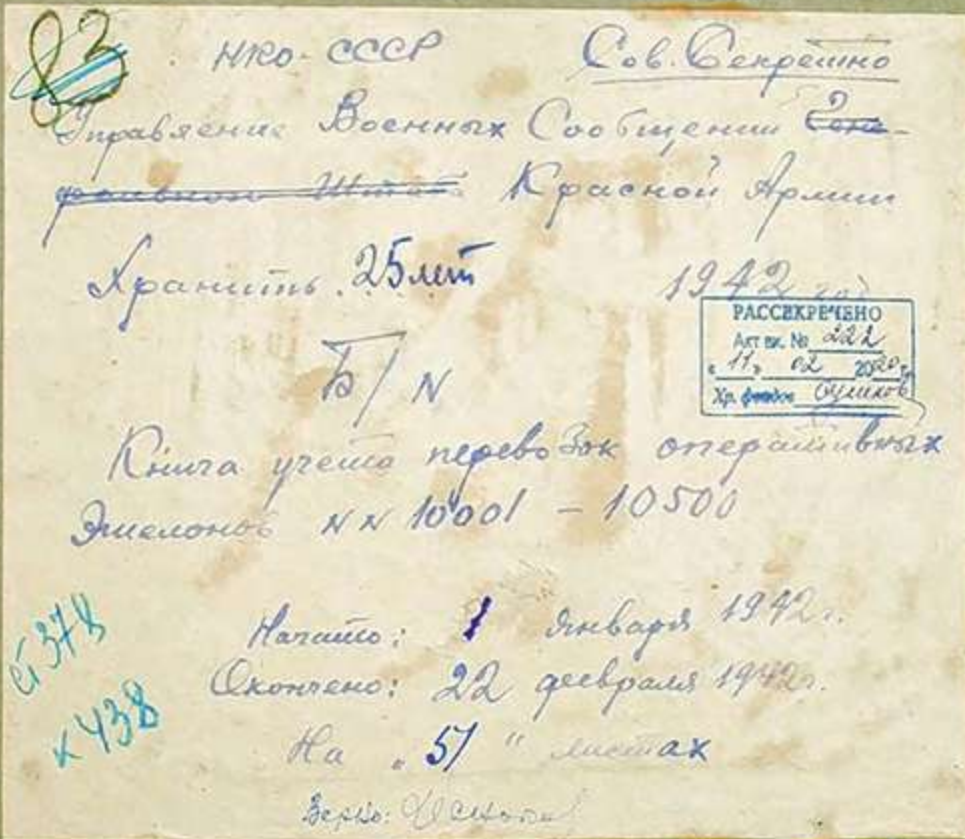 83
НКО-СССР Сов. Секретно
Управление Военных Сообщений Гене-
ральной Штаб Красной Армии
Хранить 25 лет 1942 год
РАССЕКРЕЧЕНО
Акт вх. № 222
« 11 » 02 2020 г.
Хр. фондов
Б/N
Книга учета перевозок оперативных
Эшелонов NN 10001 - 10500
ст 378
к 438
Начато: 1 января 1942 г.
Окончено: 22 февраля 1942 г.
На „ 51 " листах
Верно: